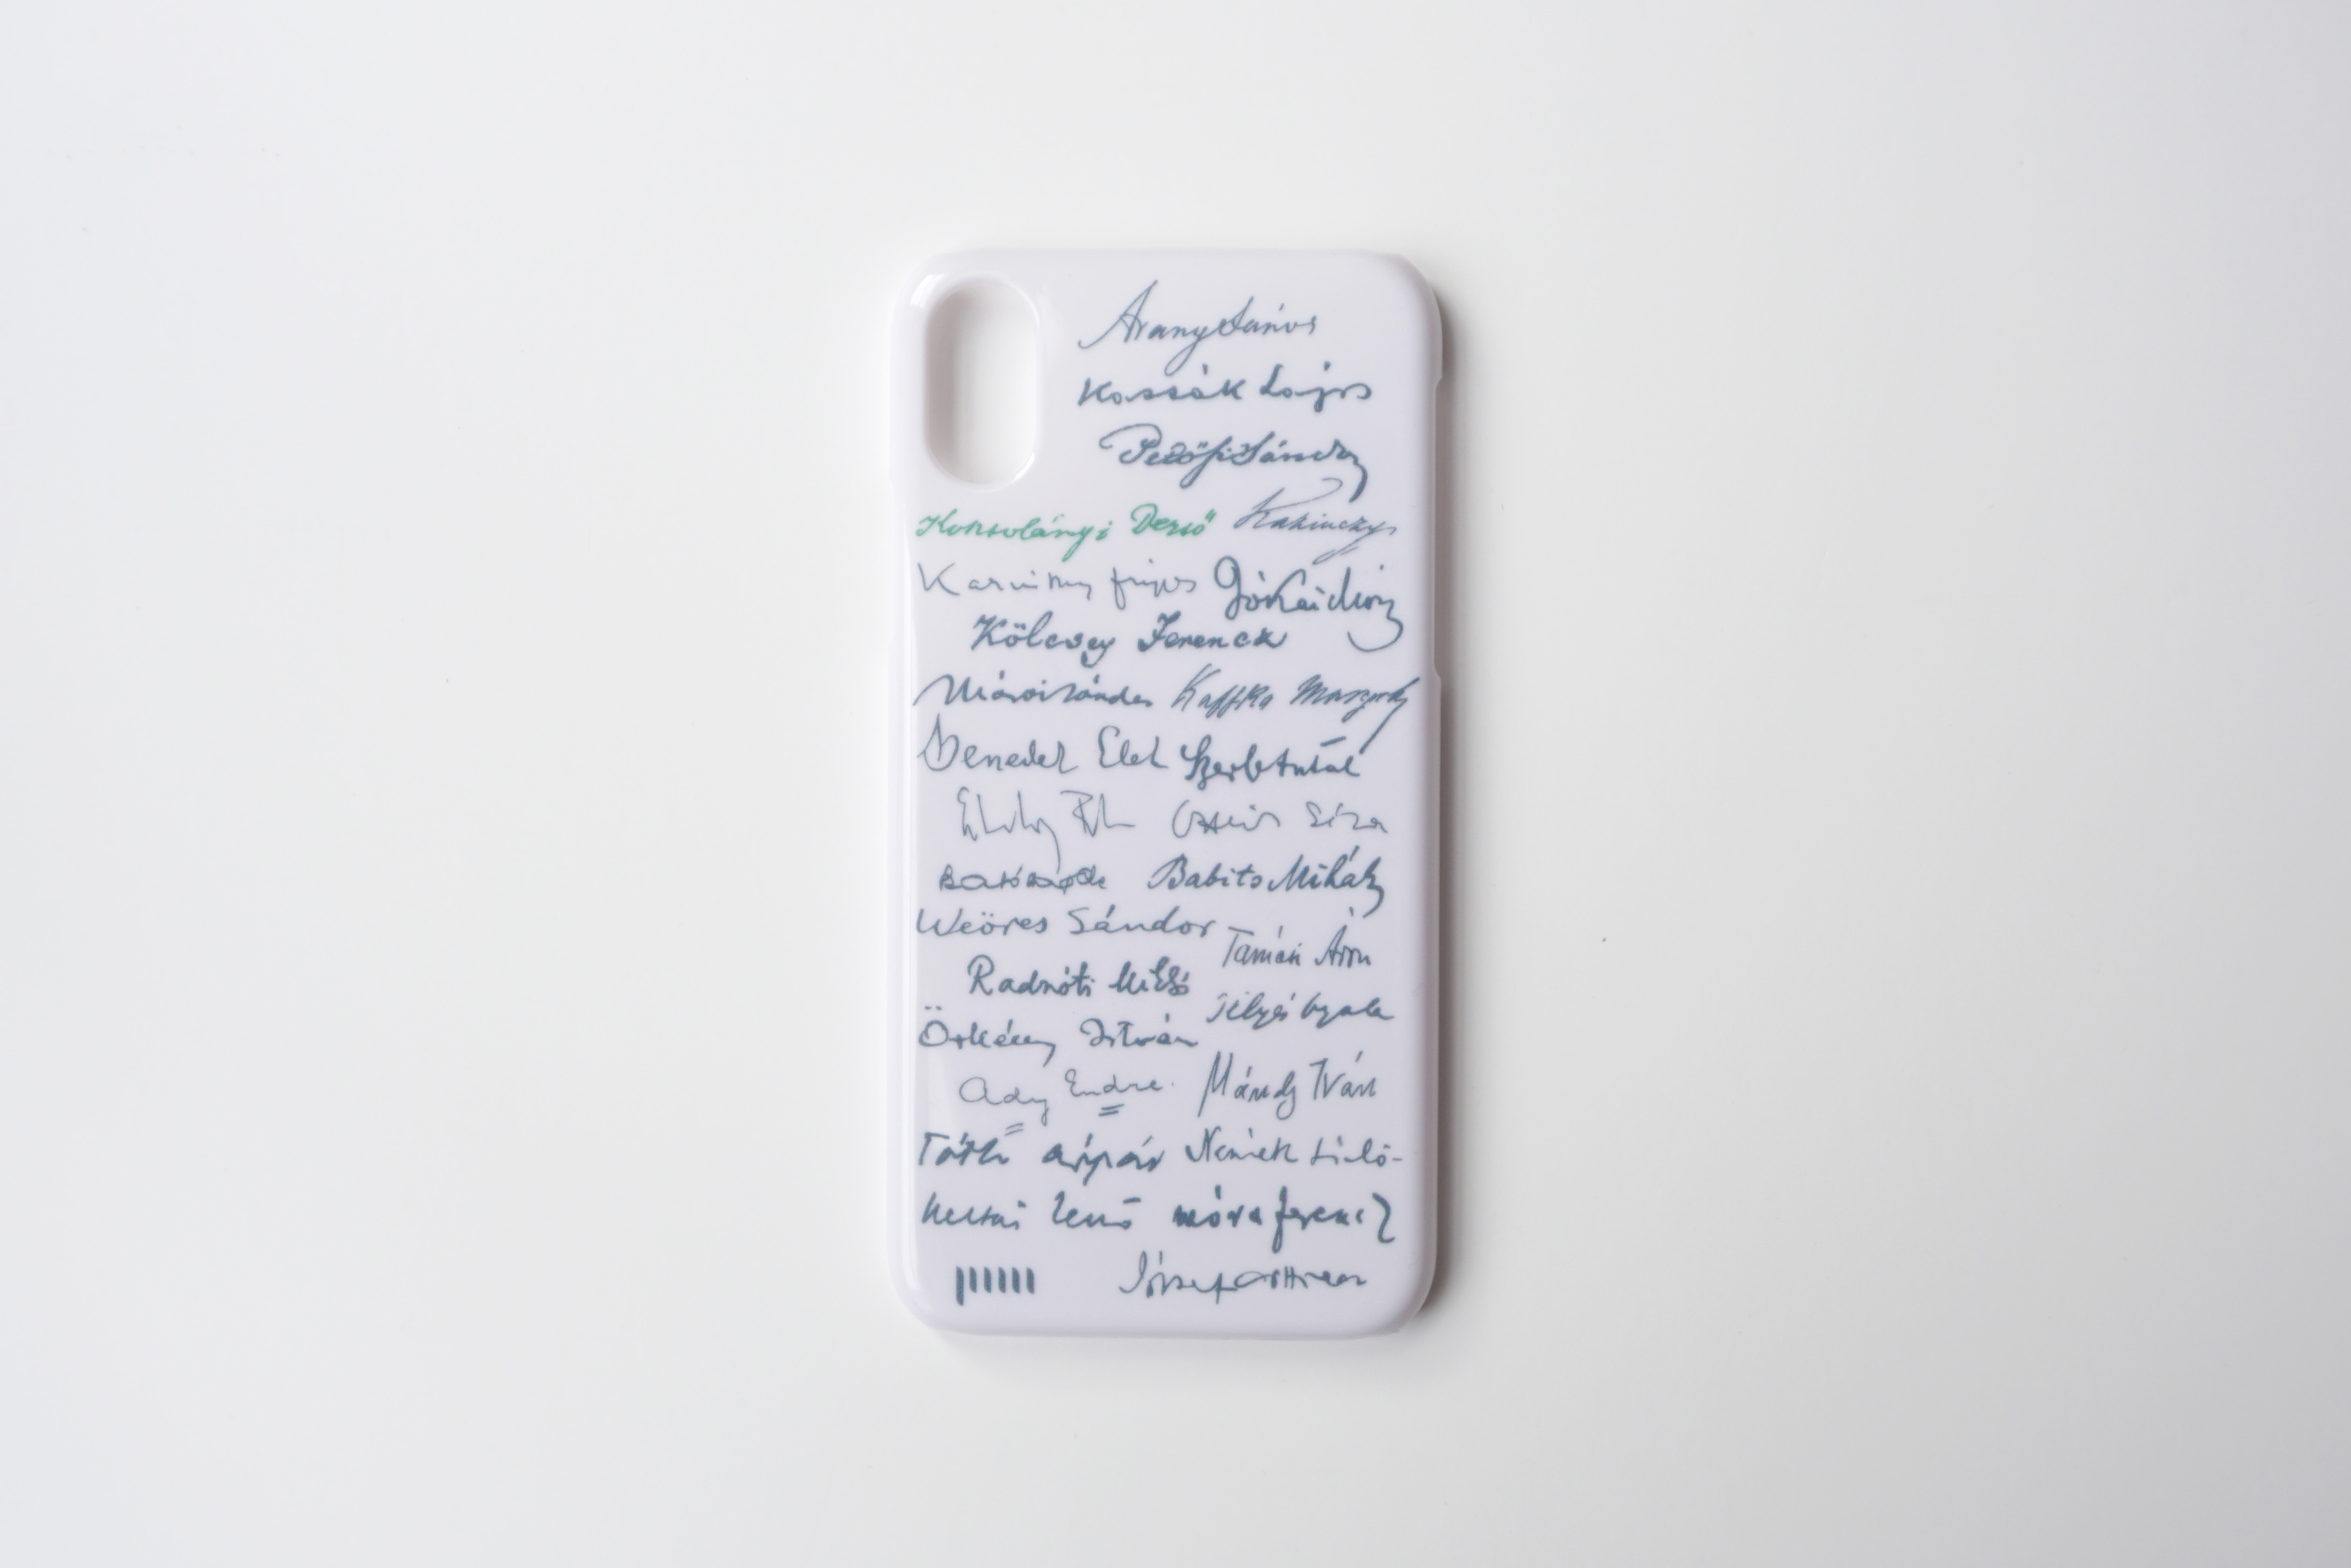 Arany János
Kassák Lajos
Petőfi Sándor
Kosztolányi Dezső Kazinczy
Karinthy Frigyes Jókai Mór
Kölcsey Ferencz
Márai Sándor Kaffka Margit
Benedek Elek Szerb Antal
Gárdonyi Géza
Babits Mihály
Weöres Sándor Tamási Áron
Radnóti Mikló
Illyés Gyula
Örkény István
Ady Endre. Mándy Iván
Tóth Árpád Németh László
Heltai Jenő Móra Ferenc
József Attila